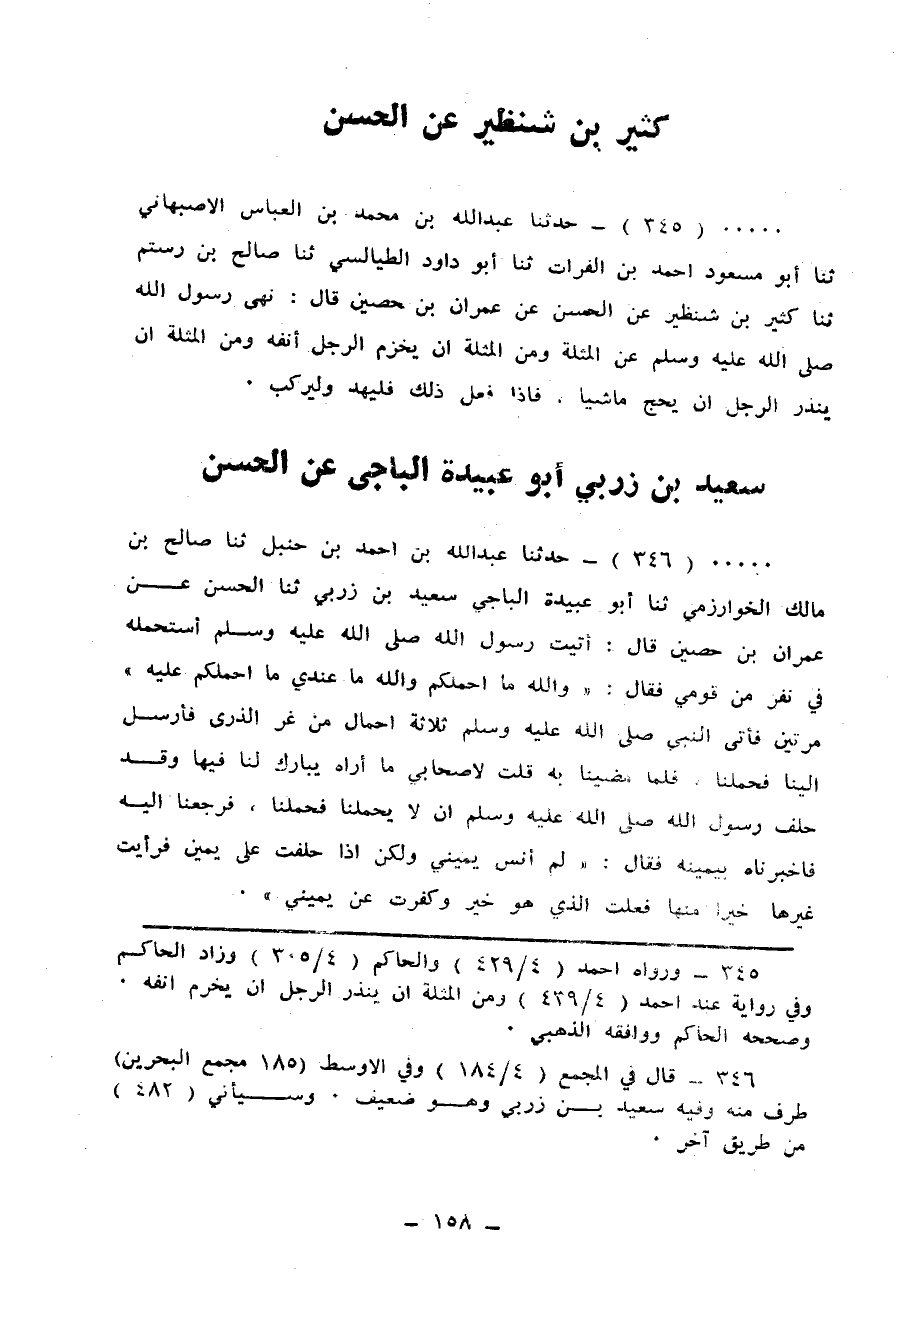 كثير بن شنظير عن الحسن
٠٠٠٠٠ ( ٣٤٥ ) ـ حدثنا عبدالله بن محمد بن العباس الاصبهاني
ثنا أبو مسعود احمد بن الفرات ثنا أبو داود الطيالسي ثنا صالح بن رستم
ثنا كثير بن شنظير عن الحسن عن عمران بن حصين قال : نهى رسول الله
صلى الله عليه وسلم عن المثلة ومن المثلة ان يخزم الرجل أنفه ومن المثلة ان
ينذر الرجل ان يحج ماشيا ، فاذا فعل ذلك فليهد وليركب ٠
سعيد بن زربي أبو عبيدة الباجي عن الحسن
٠٠٠٠٠ ( ٣٤٦ ) ـ حدثنا عبدالله بن احمد بن حنبل ثنا صالح بن
مالك الخوارزمي ثنا أبو عبيدة الباجي سعيد بن زربي ثنا الحسن عن
عمران بن حصين قال : أتيت رسول الله صلى الله عليه وسلم أستحمله
في نفر من قومي فقال : « والله ما احملكم والله ما عندي ما احملكم عليه »
مرتين فأتى النبي صلى الله عليه وسلم ثلاثة احمال من غر الذرى فأرسل
الينا فحملنا ، فلما مضينا به قلت لاصحابي ما أراه يبارك لنا فيها وقد
حلف رسول الله صلى الله عليه وسلم ان لا يحملنا فحملنا ، فرجعنا اليه
فاخبرناه بيمينه فقال : « لم أنس يميني ولكن اذا حلفت على يمين فرأيت
غيرها خيرا منها فعلت الذي هو خير وكفرت عن يميني » ٠
٣٤٥ ـ ورواه احمد ( ٤٢٩/٤ ) والحاكم ( ٣٠٥/٤ ) وزاد الحاكم
وفي رواية عند احمد ( ٤٢٩/٤ ) ومن المثلة ان ينذر الرجل ان يخرم انفه ٠
وصححه الحاكم ووافقه الذهبي ٠
٣٤٦ ـ قال في المجمع ( ١٨٤/٤ ) وفي الاوسط (١٨٥ مجمع البحرين)
طرف منه وفيه سعيد بن زربي وهو ضعيف ٠ وسيأتي ( ٤٨٢ )
من طريق آخر ٠
ـ ١٥٨ ـ